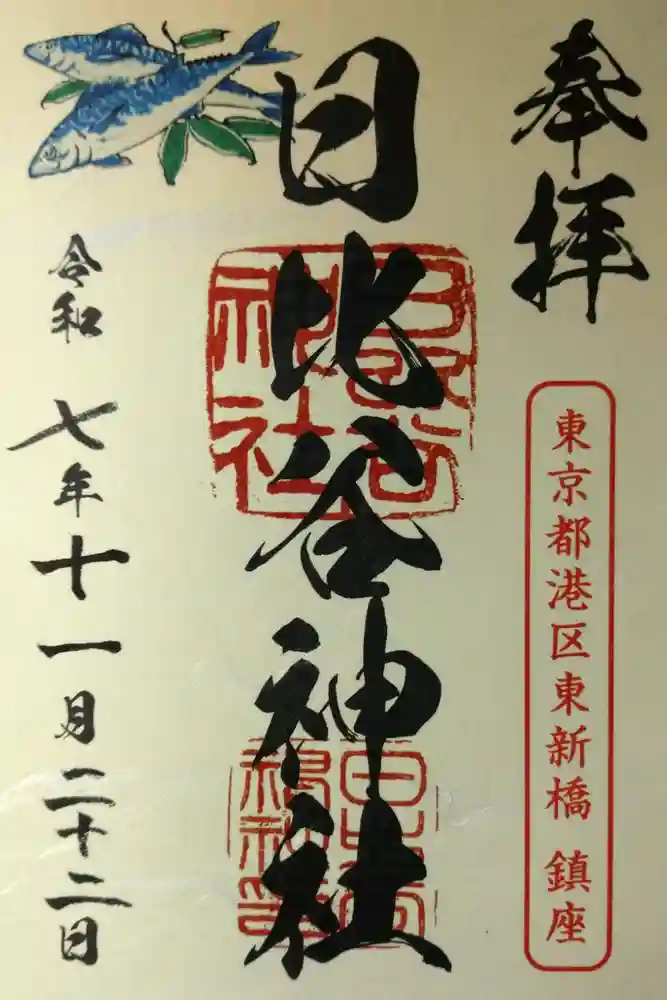 奉拝
東京都港区東新橋 鎮座
日比谷神社
日比谷神社
令和 七年十一月二十二日